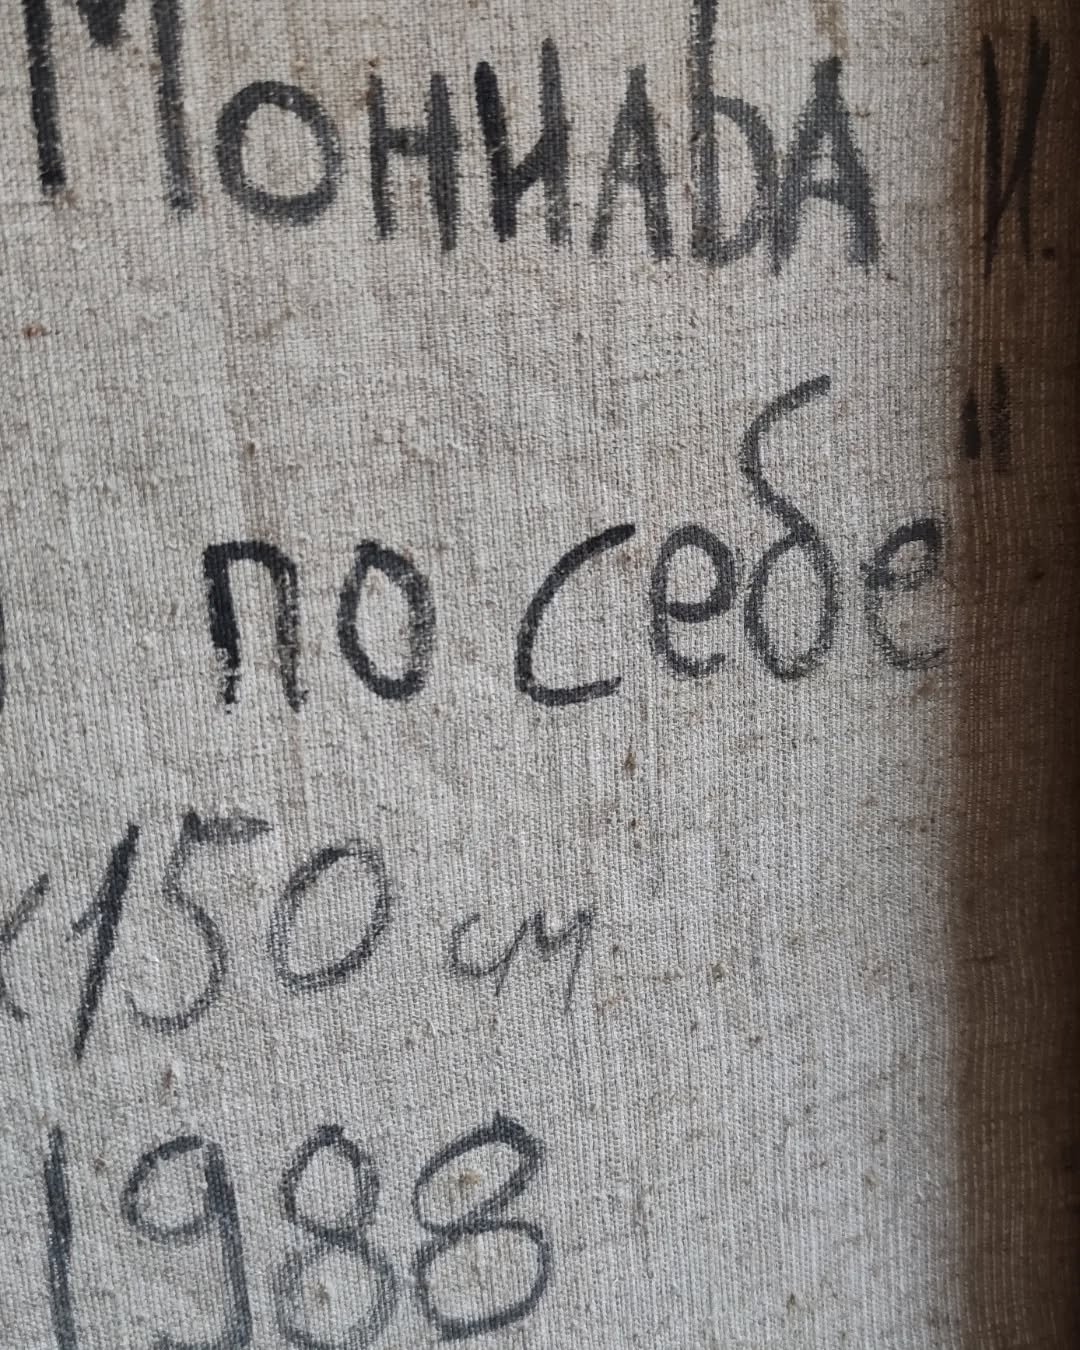 Монидва И
"
по себе
150 см
1988